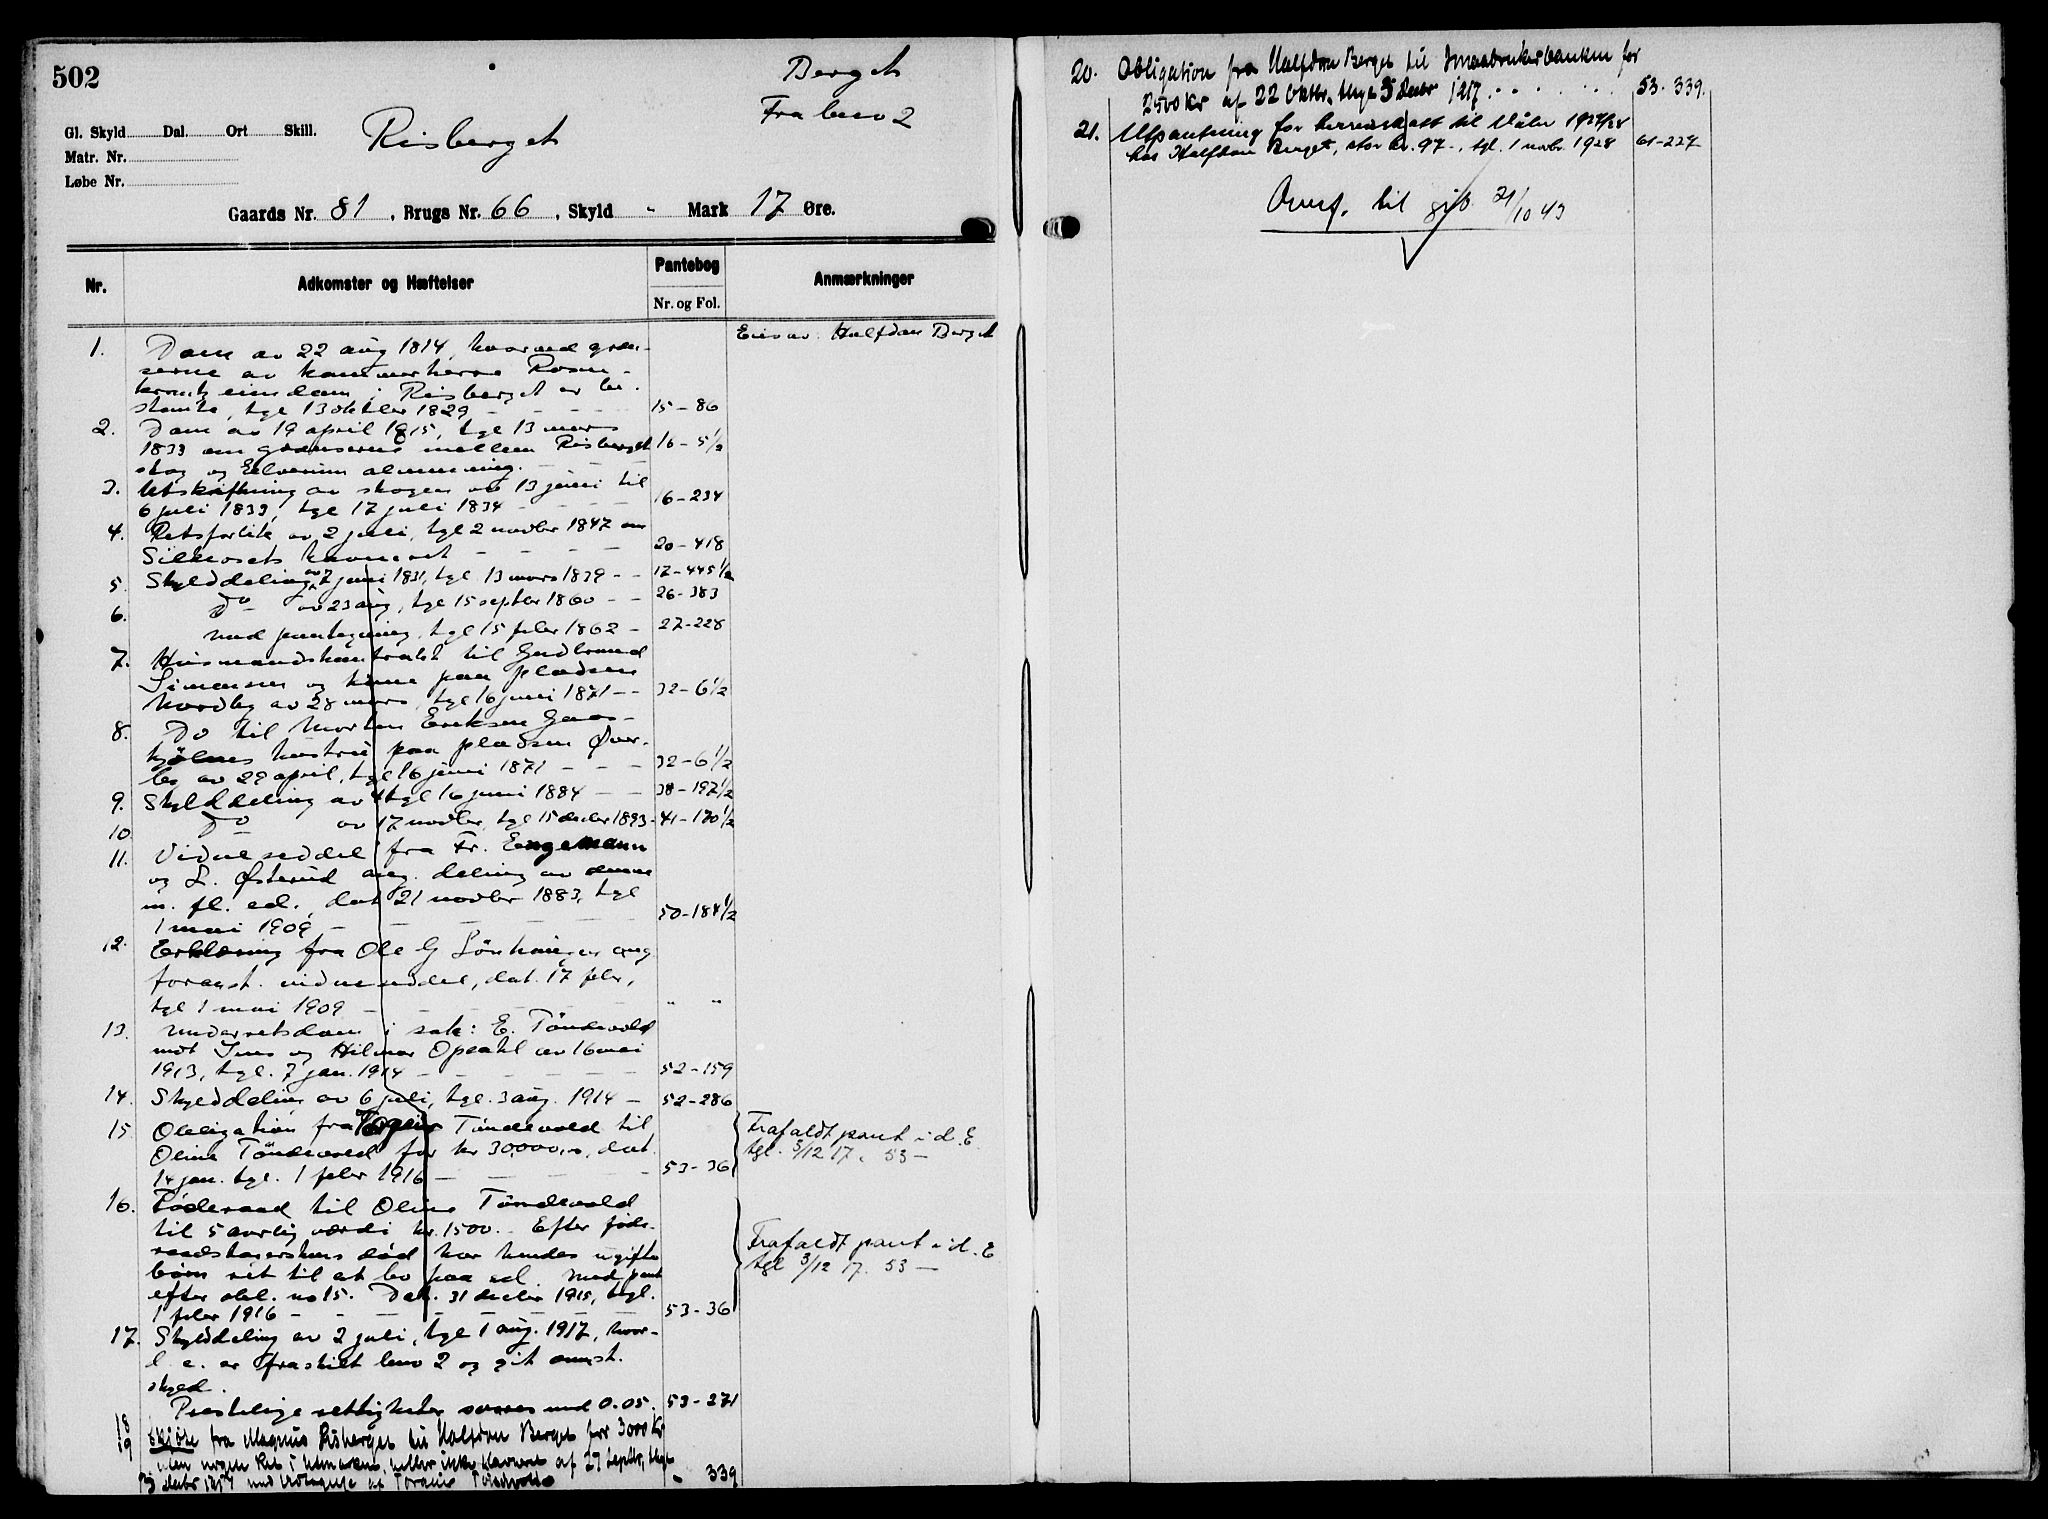 502
Berget
Fra bno 2
Gl. Skyld Dal. Ort Skill.
Matr. Nr.
Løbe Nr.
Risberget
Gaards Nr. 81, Brugs Nr. 66, Skyld - Mark 17 Øre.
Nr. Adkomster og Hæftelser Pantebog Nr. og Fol. Anmærkninger
Eies av: Halfdan Berget
1. Dom av 22 aug 1814, hvorved græn-
serne av kammerherre Rosen-
krantz eiendom i Risberget er be-
stemte, tgl 13 oktber 1829 - - - 15-86
2. Dom av 19 april 1815, tgl 13 mars
1833 om grænserne mellem Risberget 16-5 1/2
skog og Elverum almenning.
3. Utskiftning av skogen av 13 juni til
6 juli 1833, tgl 17 juli 1834 - - - 16-234
4. Retsforlik av 2 juli, tgl 2 novbr 1847 om
Silkosets havneret - - - - 20-418
5. Skylddeling av 7 juni 1831, tgl. 13 mars 1839 - - 17-445 1/2
6. Do av 23 aug, tgl 15 septbr 1860 - - 26-383
med paategning, tgl 15 febr 1862 - 27-228
7. Husmandskontrakt til Gudbrand
Simensen og kone paa pladsen
Nordby av 28 mars, tgl 16 juni 1871 - - 32-6 1/2
8. Do til Morten Eriksen Gaas-
hjølmes hustru paa pladsen Øver-
by av 29 april, tgl 16 juni 1871 - - - 32-6 1/2
9. Skylddeling av 4 tgl 16 juni 1884 - - 38-197 1/2
10. Do av 17 novbr, tgl 15 decbr 1893 - 41-170 1/2
11. Vidneseddel fra Fr. Engemann
og L. Østerud ang. deling av denne
m. fl. ed., dat 21 novbr 1883, tgl
1 mai 1909 - - - - - 50-184 1/2
12. Erklæring fra Ole G Lönhaugen ang
foranst. vidneseddel, dat. 17 febr,
tgl 1 mai 1909 - - - - " "
13. Underretsdom i sak: E. Töndevold
mot Jens og Hilmar Opsahl av 16 mai
1913, tgl. 7 jan. 1914 - - - - 52-159
14. Skylddeling av 6 juli, tgl. 3 aug. 1914 - 52-286
15. Obligation fra Töndevold til
Oline Töndevold for kr 30,000,-, dat.
14 jan. tgl. 1 febr 1916 - - - 53-36
Frafaldt pant i d. E
tgl. 3/12 17. 53 -
16. Föderaad til Oline Töndevold
til 5 aarlig værdi kr. 1500.- Efter föde-
raadstagerskens död har hendes ugifte
børn ret til at bo paa ed. Med pant
efter obl. no 15. Dat. 31 decbr 1915, tgl.
1 febr 1916 - - - - - 53-36
Frafaldt pant i d. E
tgl 3/12 17. 53 -
17. Skylddeling av 2 juli, tgl 1 aug. 1917, hvor-
l. e. er fraskilt bno 2 og git anst.
skyld.
Prestelige rettigheter svares med 0.05. 53-271
18
19 Skjöte fra Magnus Risberget til Halfdan Berget for 3000 Kr
uten nogen ret i utmarken, heller ikke havneret af 27 septbr, tlgt
3 decbr 1917 med vedtagelse af Töndevold - 339
20. Obligation fra Halfdan Berget til Smaabrukerbanken for
2500 Kr af 22 Oktbr, tlyst 3 decbr 1917 . . . . . . 53-339.
21. Utpantning for herredsskatt til Våler 1927/28
hos Halfdan Berget, stor kr. 97.-, tgl. 1 novbr. 1928 61-227
Overf. til 21/10 43